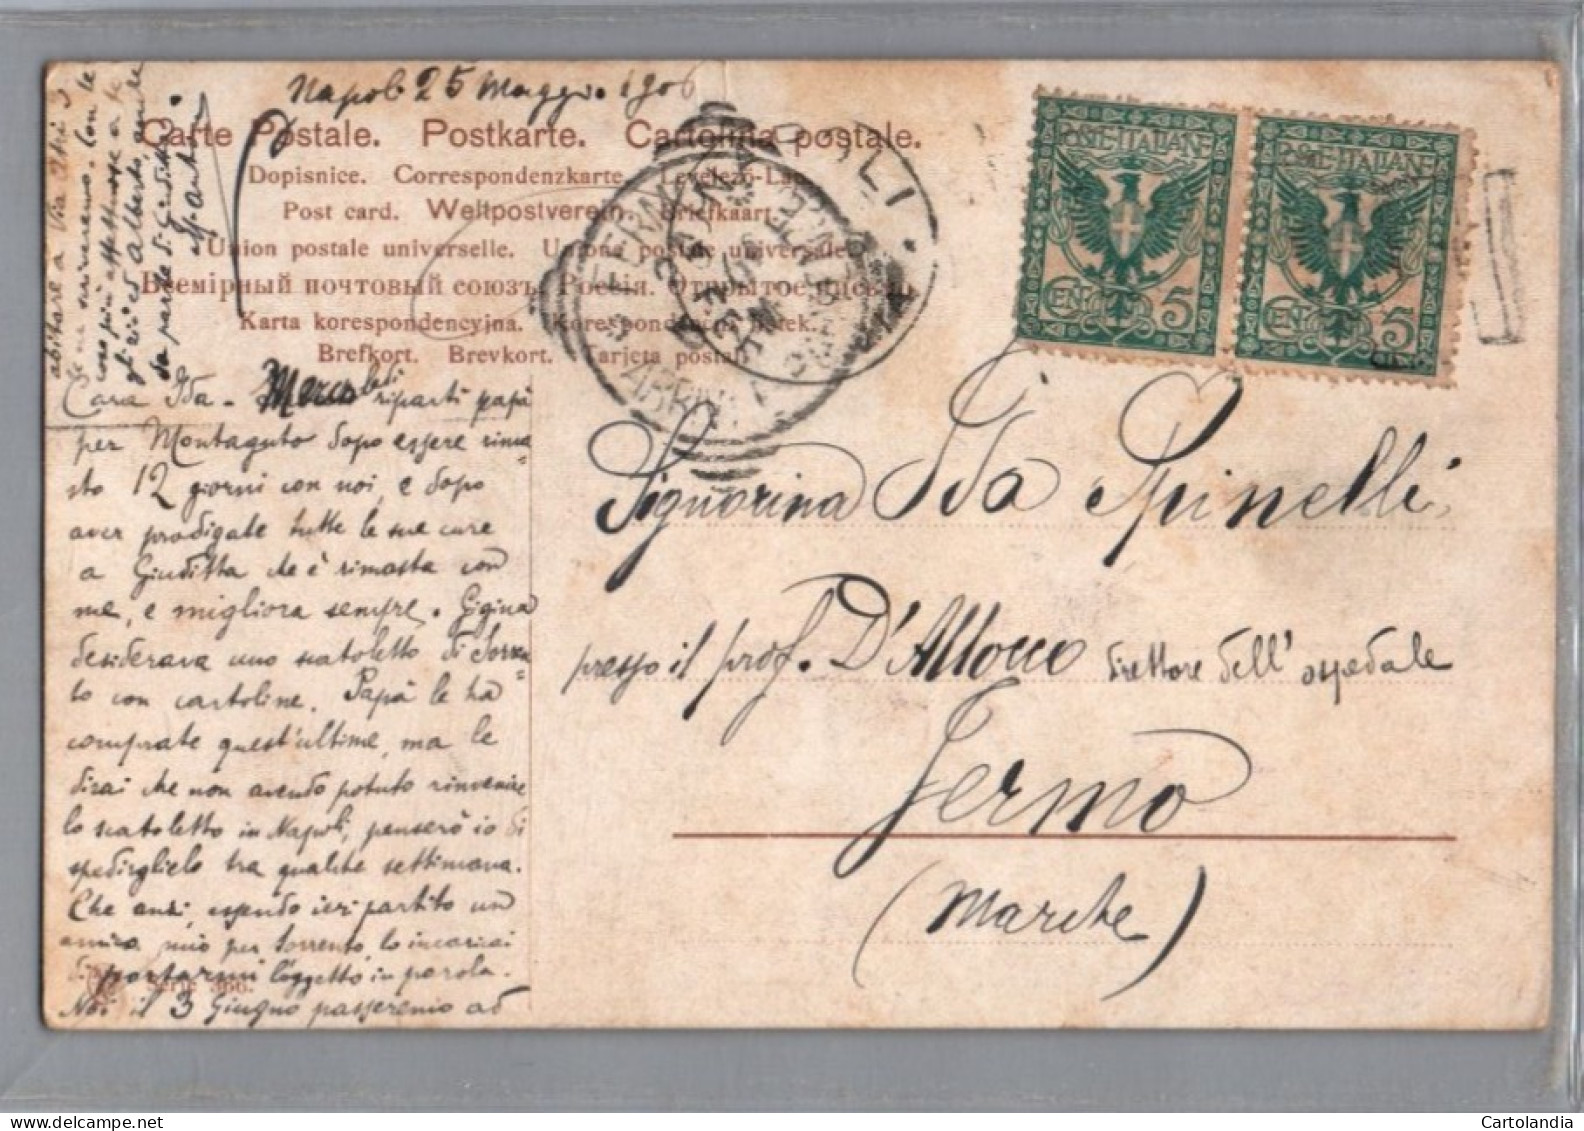 Napoli 25 Maggio 1906
Carte Postale. Postkarte. Cartolina postale.
Dopisnice. Correspondenzkarte. Levelező-Lap.
Post card. Weltpostverein. Briefkaart.
Union postale universelle. Unione postale universale.
Всемірный почтовый союзъ. Россія. Открытое письмо.
Karta korespondencyjna. Korespondenční lístek.
Brefkort. Brevkort. Tarjeta postal.
NAPOLI
FERMO
ARRIVI
POSTE·ITALIANE
CENT. 5
POSTE·ITALIANE
CENT. 5
Cara Ida - Mercoledì riparti papà
per Montaguto dopo essere rima
sto 12 giorni con noi, e dopo
aver prodigate tutte le sue cure
a Giuditta che è rimasta con
me, e migliora sempre. Gigina
desiderava uno scatoletto di Sorren
to con cartoline. Papà le ha
comprate quest'ultime, ma le
dirai che non avendo potuto rinvenire
lo scatoletto in Napoli, penserò io di
spedirglielo tra qualche settimana.
Che anzi, essendo ieri partito un
amico mio per Sorrento, lo incaricai
di portarmi l'oggetto in parola.
Noi il 3 Giugno passeremo ad
abitare a Via
scriveremo. Con le
cose più affettuose a te
ed Alberto, anche
da parte di Giuditta.
aff. Anton
Serie 366.
Signorina Ida Spinelli
presso il prof. D'Allocco direttore dell'ospedale
Fermo
(Marche)
Cartolandia